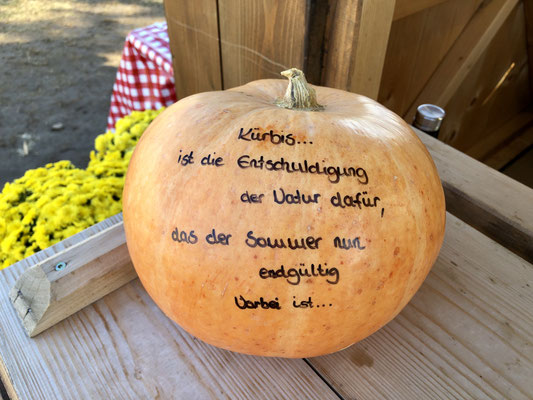 Kürbis...
ist die Entschuldigung
der Natur dafür,
das der Sommer nun
endgültig
Vorbei ist...